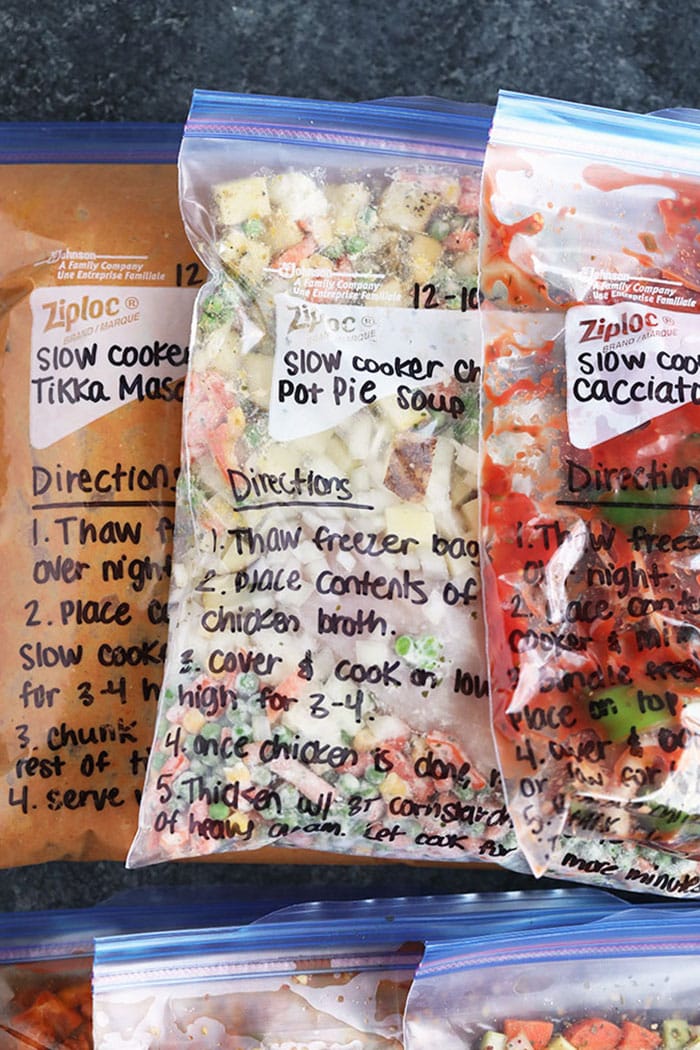 Johnson
A Family Company
Une Entreprise Familiale
12
Ziploc®
BRAND/MARQUE
Slow cooker
Tikka Mas
Directions
1. Thaw
over night
2. Place
Slow cook
for 3-4 h
3. chunk
rest of
4. serve
Johnson
A Family Company
Une Entreprise Familiale
12-10
Ziploc®
BRAND/MARQUE
Slow cooker ch
Pot Pie soup
Directions
1. Thaw freezer bag
2. Place contents of
chicken broth.
3. cover & cook on low
high for 3-4.
4. once chicken is done,
5. Thicken w/ 3T cornstarch
of heavy cream. Let cook for
more minutes
Johnson
A Family Company
Une Entreprise Familiale
Ziploc®
BRAND/MARQUE
Slow coo
Cacciato
Direction
1. Thaw freez
over night.
2. Place cont
cooker &
3. Bundle fres
Place on top.
4. cover &
or low for
5.